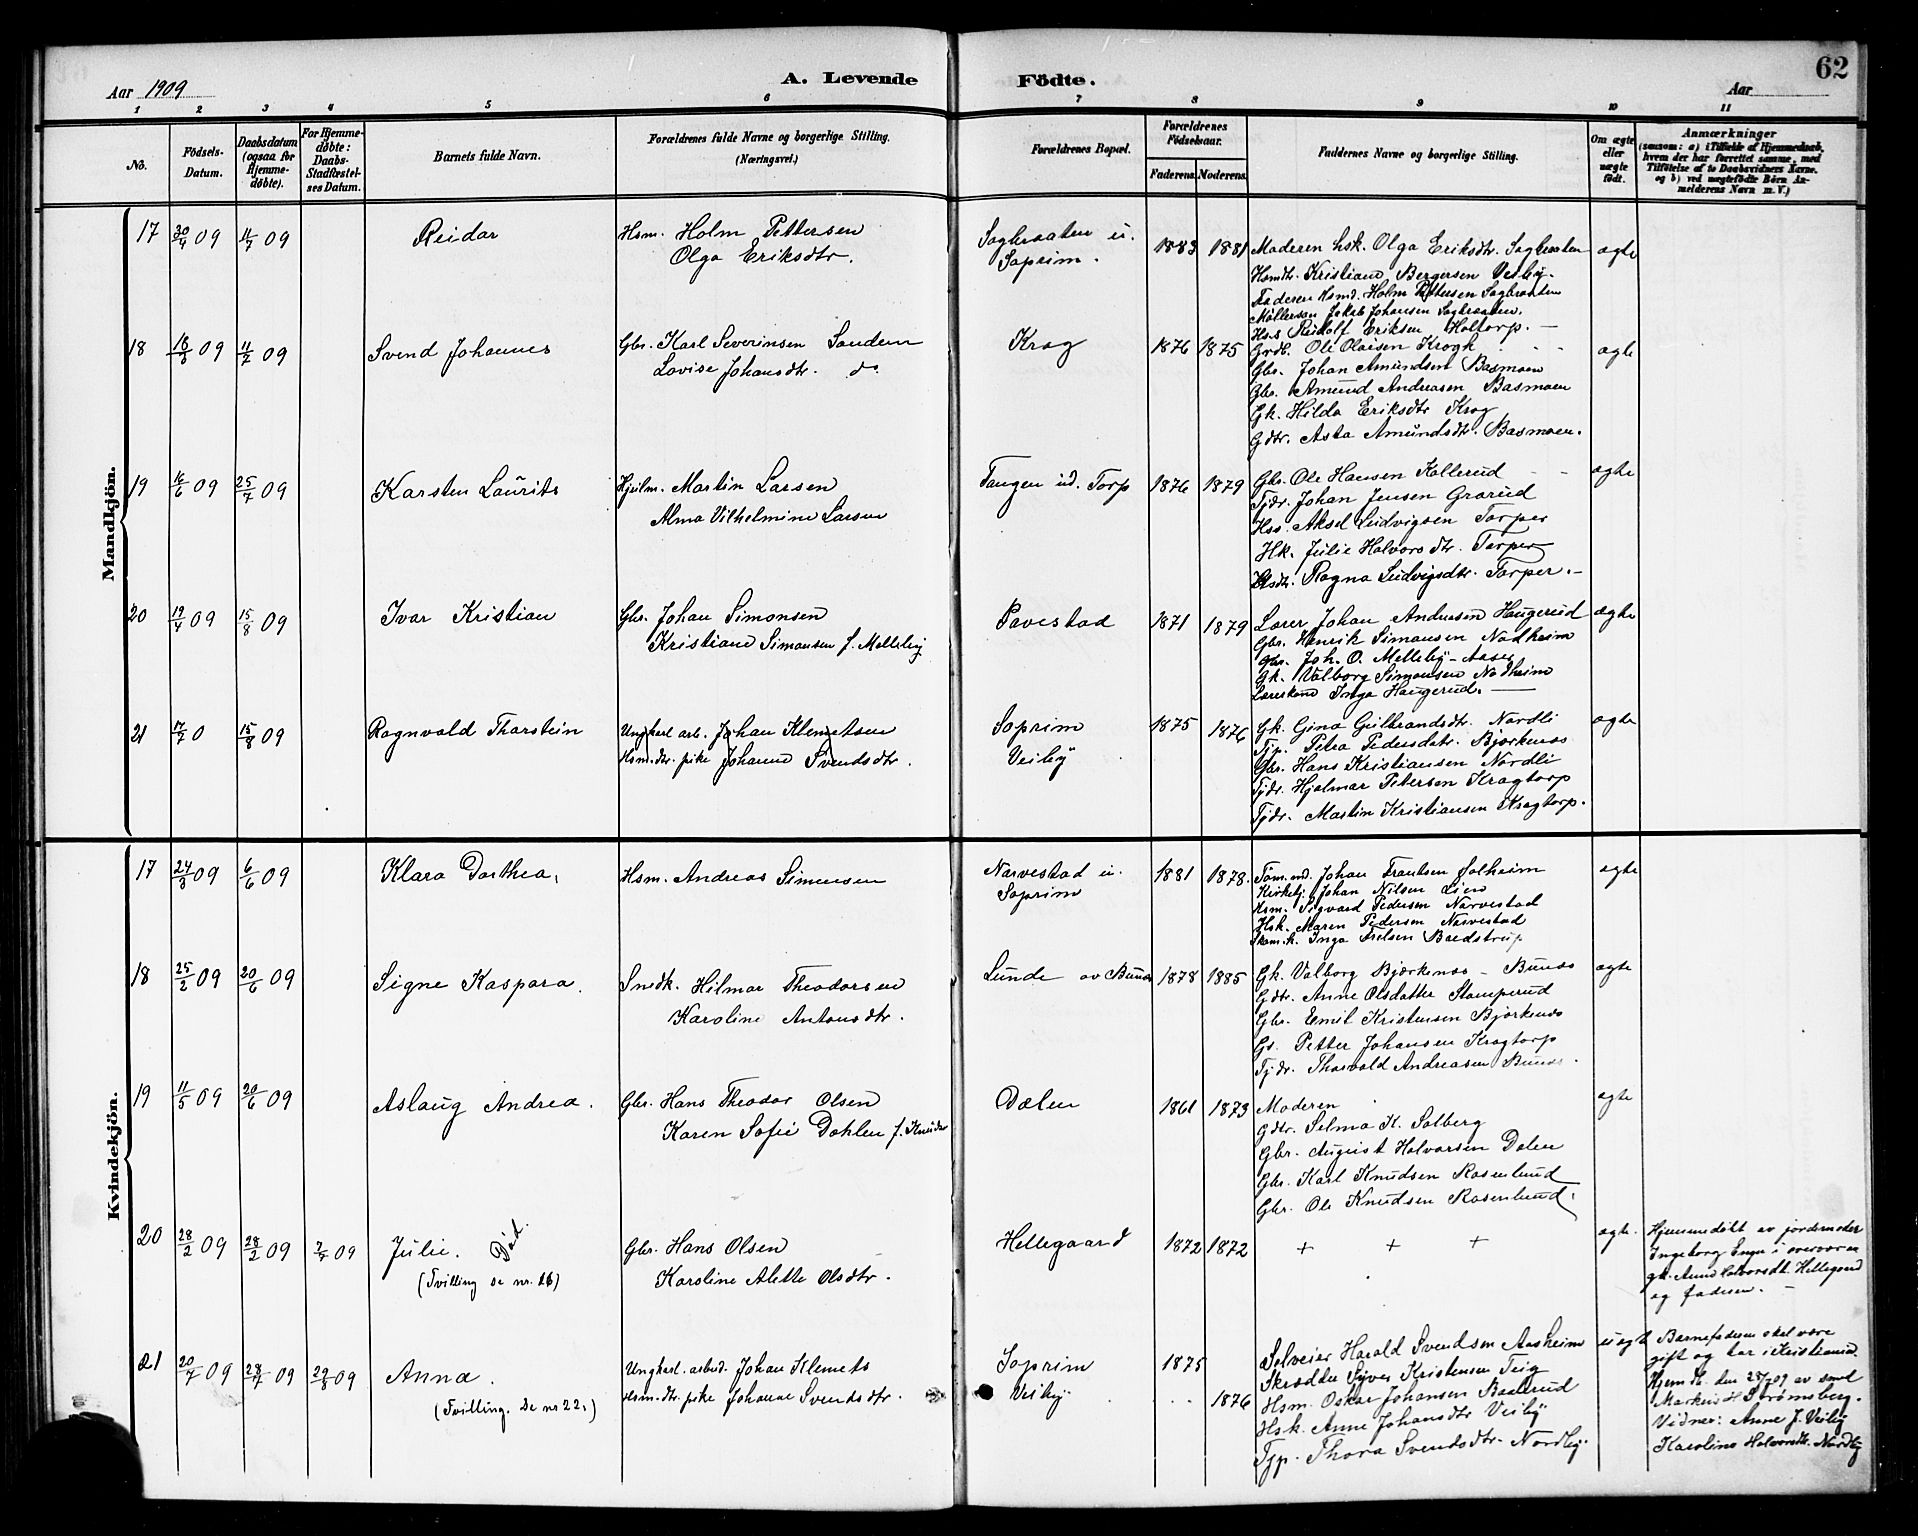 62
Aar 1909
A. Levende
Födte.
Aar
1 2 3 4 5 6 7 8 9 10 11
Nô.
Födsels-Datum.
Daabsdatum (ogsaa for Hjemmedøbte).
For Hjemmedøbte: Daabs-Stadfæstelses Datum.
Barnets fulde Navn.
Forældrenes fulde Navne og borgerlige Stilling. (Næringsvei.)
Forældrenes Bopæl.
Forældrenes Födselsaar.
Faderens. Moderens.
Faddernes Navne og borgerlige Stilling.
Om ægte eller uægte födt.
Anmærkninger
(saasom: a) i Tilfælde af Hjemmedaab,
hvem der har forrettet samme, med
Tilföielse af to Daabsvidners Navne.
og b) ved uægtefödte Börn An-
melderens Navn m. V.)
Mandkjön.
17 30/4 09 11/7 09 Reidar
Hsm. Holm Pettersen
Olga Eriksdtr.
Sagbraaten u.
Soprim.
1883 1881
Moderen hsk. Olga Eriksdtr. Sagbraaten
Hsmdtr. Kristiane Bergersen Veiby.
Faderen Hsmd. Holm Pettersen Sagbraaten
Möllersøn Jakob Johansen Sagbraaten.
Hss. Rudolf Eriksen Holtorp. —
ægte
18 16/3 09 11/7 09 Svend Johannes
Gbr. Karl Severinsen Sandem
Lovise Johansdtr. do
Krog
1876 1875
Grdb. Ole Olaisen Krogh
Gbr. Johan Amundsen Basmoen
Gbr. Amund Andreasen Basmoen
Gk. Hilda Eriksdtr Krog
Gdtr. Asta Amundsdtr. Basmoen.
ægte
19 16/6 09 25/7 09 Karsten Laurits
Hjulm. Martin Larsen
Alma Vilhelmine Larsen
Tangen ud. Torp
1876 1879
Gbr. Ole Hansen Kallerud
Tjdr. Johan Jensen Grarud
Hss. Aksel Ludvigsen Torper
Hk. Julie Halvorsdtr. Torper
Hsdtr. Ragna Ludvigsdtr. Torper. —
ægte
20 19/4 09 15/8 09 Ivar Kristian
Gbr. Johan Simonsen
Kristiane Simonsen f. Melleby
Pavestad
1871 1879
Lærer Johan Andersen Haugerud
Gbr. Henrik Simonsen Nadheim
Gbr. Joh. O. Melleby - Aaser
Gk. Valborg Simonsen Nadheim
Lærerkone Inga Haugerud. —
ægte
21 17/7 0 15/8 09 Ragnvald Tharstein
Ungkarl arb. Johan Klemetsen
Hsm.dtr. pike Johanne Svendsdtr.
Soprim
Veiby
1875 1876
Gk. Gina Gulbrandsdtr. Nordli
Tjp. Petra Pedersdatr. Bjørkenæs
Gbr. Hans Kristiansen Nordli
Tjdr. Hjalmar Petersen Kragtorp
Tjdr. Martin Kristiansen Kragtorp.
ægte
Kvindekjön.
17 24/3 09 6/6 09 Klara Dorthea,
Hsm. Andreas Simensen
Narvestad u.
Soprim
1881 1878.
Töm.md. Johan Frantsen Solheim
Kirketj. Johan Nilsen Lien
Hsm. Sigvard Pedersen Narvestad
Hsk. Maren Pedersen Narvestad
Skom.k. Inga Bredstrup
ægte
18 25/2 09 20/6 09 Signe Kaspara.
Snedk. Hilmar Theodorsen
Karoline Antonsdtr.
Lunde av Bunæs
1878 1885
Gk. Valborg Bjørkenæs - Bunæs
Gdtr. Anne Olsdatter Stamperud
Gbr. Emil Kristensen Bjørkenæs
Gs. Petter Johansen Kragtorp
Tjdr. Thorvald Andreasen Bunæs.
ægte
19 11/5 09 20/6 09 Aslaug Andrea.
Gbr. Hans Theodor Olsen
Karen Sofie Dahlen f. Knudsen
Dælen
1861 1873
Moderen
Gdtr. Selma K. Solberg
Gbr. August Halvorsen Dælen
Gbr. Karl Knudsen Rosenlund
Gbr. Ole Knudsen Rosenlund.
ægte
20 28/2 09 28/2 09 2/5 09 Julie. Död.
(Tvilling se nr. 16)
Gbr. Hans Olsen
Karoline Alette Olsdtr.
Hellegaard
1872 1872
+ + +
ægte.
Hjemmedöbt av jordemoder
Ingeborg Engen i overvær av
gk. Anne Halvorsdtr. Hellegaard
og faderen. —
21 20/7 09 28/7 09 29/8 09 Anna.
(Tvilling. Se nr 22.)
Ungkarl. arbeid. Johan Klemets
Hsm.dtr. pike Johanne Svendsdtr.
Soprim
Veiby.
1875
1876
Solveier Harald Svendsen Aasheim
Skrædder Syver Kristensen Teig
Hsm. Oskar Johansen Baterud
Hsk. Anne Johansdtr Veiby
Tjp. Thora Svendsdtr. Nordby.
uægte
Barnefaderen skal være
gift og bor i Kristiania.
Hjemdt. den 28/7 09 av
Strømsberg.
Vidner: Anne J. Veiby
Karoline Halvorsdtr. Nordby